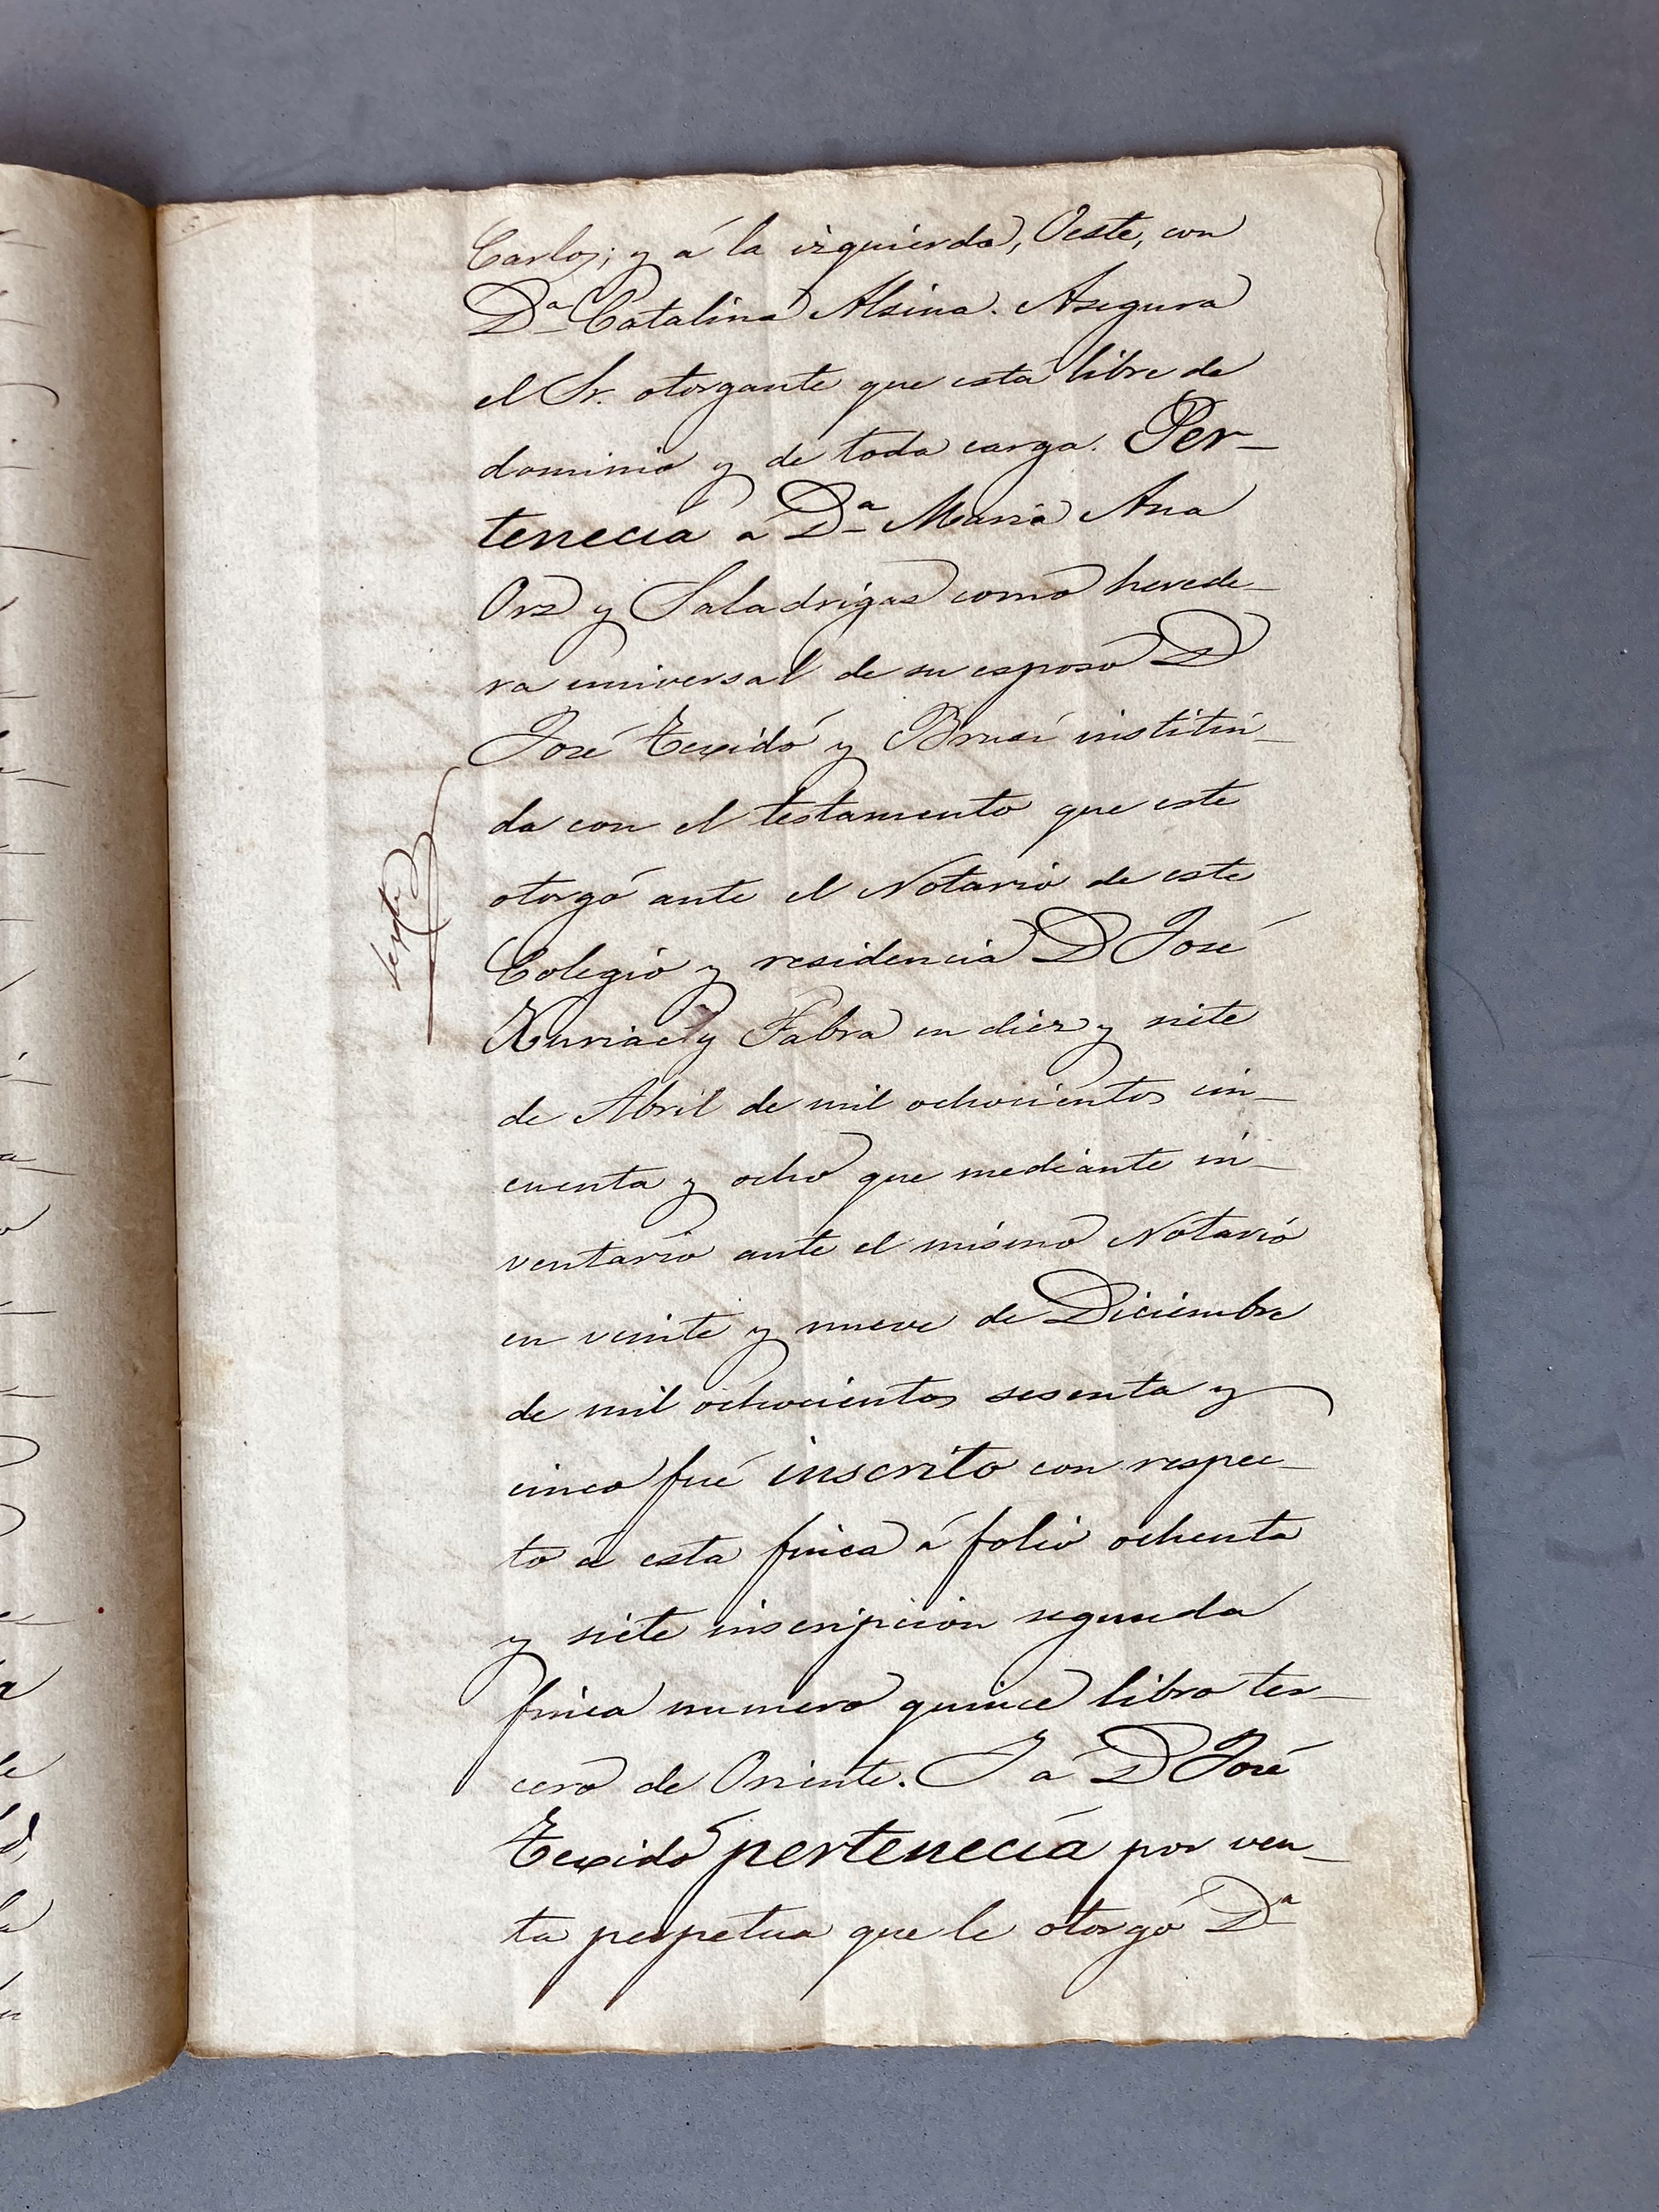 Carlos; y á la izquierda, Oeste, con
Dª Catalina Alsina. Asegura
el Sr. otorgante que está libre de
dominio y de toda carga. Per-
tenecia a Dª Maria Ana
Ors y Saladrigas como herede-
ra universal de su esposo D
José Texidó y Brusi institui-
da con el testamento que este
otorgó ante el Notario de este
Colegio y residencia D José
Xuriach y Fabra en diez y siete
de Abril de mil ochocientos cin-
cuenta y ocho que mediante in-
ventario ante el mismo Notario
en veinte y nueve de Diciembre
de mil ochocientos sesenta y
cinco fué inscrito con respec-
to á esta finca á folio ochenta
y siete inscripcion segunda
finca numero quince libro ter-
cero de Oriente. Y á D José
Texidó pertenecía por ven-
ta perpetua que le otorgó Dª